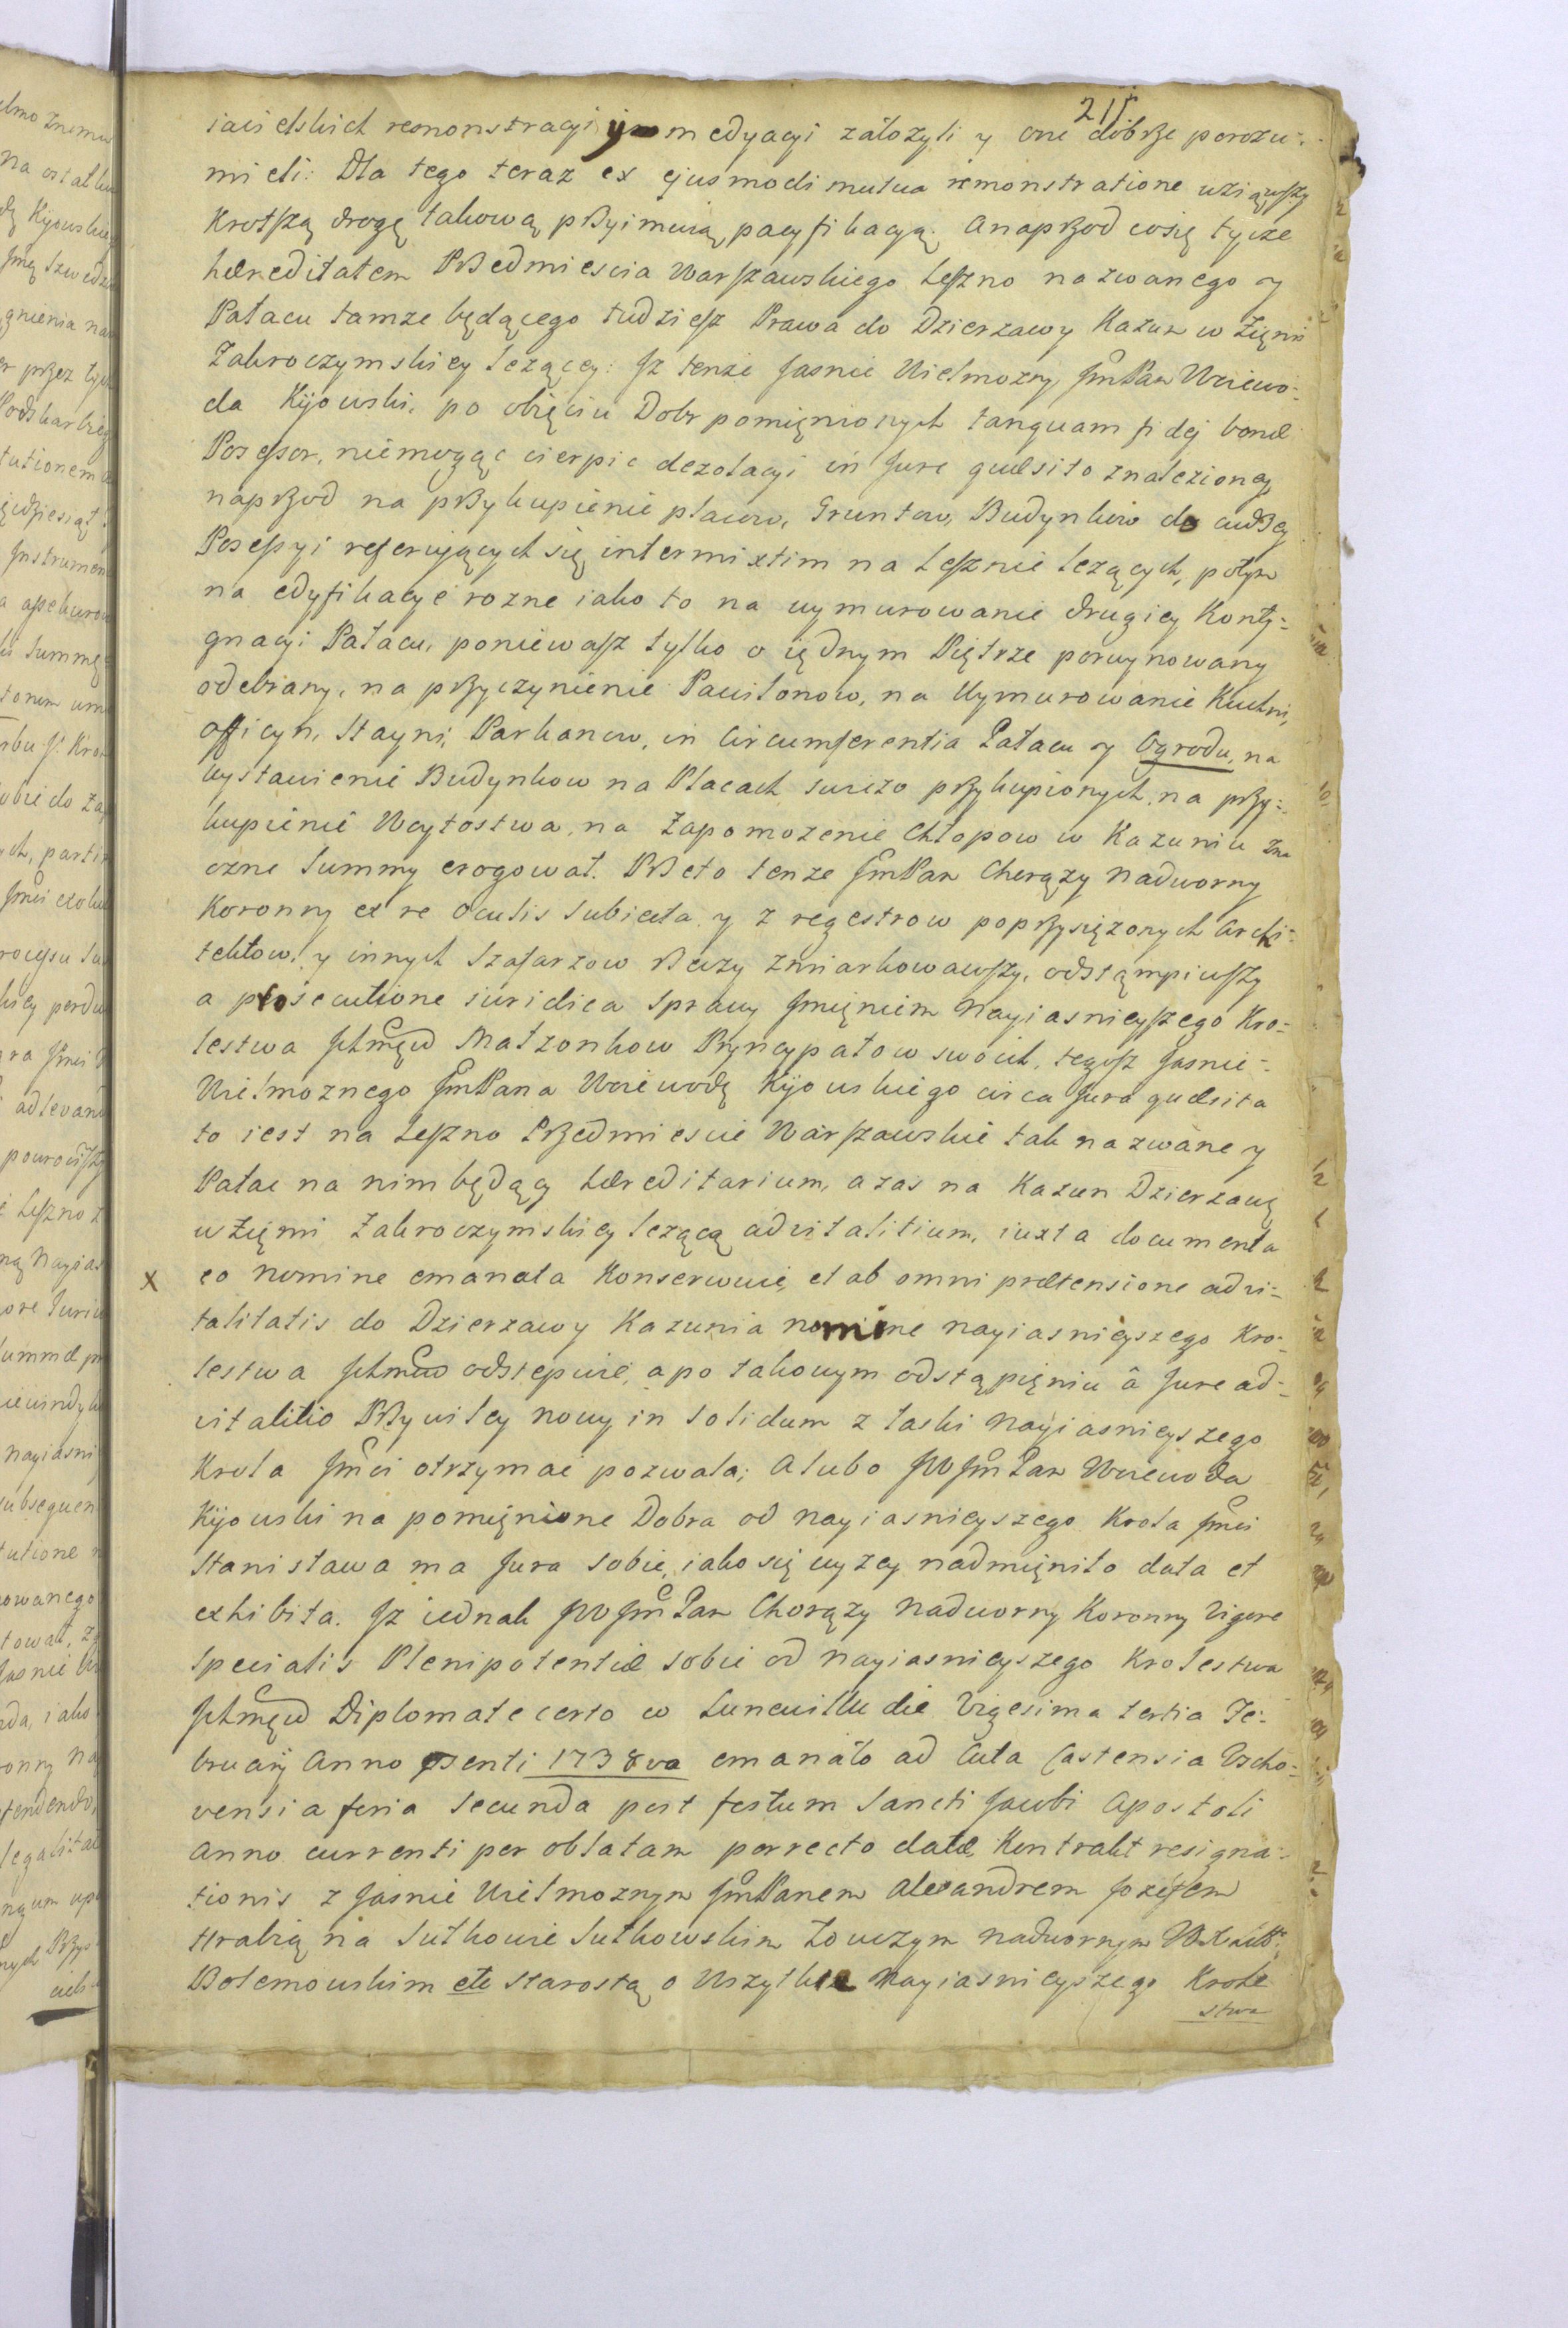 211
iacielskich remonstracyi y medyacyi założyli y one dobrze porozu-
mieli: Dla tego teraz ex ejusmodi mutua remonstratione wziąwszy
Krotszą drogę takową przyimuią pacyfikacyą. Anaprzod cosię tycze
hæreditatem Przedmiescia Warszawskiego Leszno nazwanego y
Pałacu tamze będącego tudziesz Prawa do Dzierzawy Kazun w Zięmi
Zakroczymskiey lezącey: Jz tenze Jasnie Wielmozny JmPan Woiewo-
da Kijowski, po obięciu Dobr pomięnionych tanquam fidej bonæ
Possessor, niemogąc cierpic dezolacyi in Jure quæsito znalezioney
naprzod na przykupienie placow, Gruntow, Budynkow do cudzey
Possessyi referuiących się intermixtim na Lesznie lezących, potym
na edyfikacye rozne iako to na wymurowanie drugiey Konty-
gnacyi Pałacu, poniewasz tylko o iędnym Piętrze porwynowany
odebrany, na przyczynienie Pawilonow, na Wymurowanie Kuchni,
officyn, Stayni, Parkanow, in Circumferentia Pałacu y Ogrodu, na
wystawienie Budynkow na Placach swiezo przykupionych, na przy-
kupienie Woytostwa, na Zapomozenie Chłopow w Kazuniu zna
czne Summy erogował. Przeto tenze JmPan Chorązy nadworny
Koronny ex re oculis subiecta y z regestrow poprzysięzonych Archi-
tektow, y innych Szafarzow Rzeczy zmiarkowawszy, odstąmpiwszy
a prosecutione iuridica Sprawy Jmięniem Nayiasnieyszego Kro-
lestwa Jchmęciow Małzonkow Pryncypałow swoich, tegosz Jasnie-
Wielmoznego JmPana Woiewodę Kijowskiego circa Jura quæsita
to iest na Leszno Przedmiescie Warszawskie tak nazwane y
Pałac na nim będący hæreditarium, azas na Kazun Dzierzawę
w Zięmi Zakroczymskiey lezącą advitalitium, iuxta documenta
x eo nomine emanata Konserwuie, et ab omni prætensione advi-
talitatis do Dzierzawy Kazunia nomine nayiasnieyszego Kro-
lestwa Jchmciow odstepuie, apo takowym odstąpięniu â Jure ad-
vitalitio Przywiley nowy in solidum z łaski nayiasnieyszego
Krola Jmci otrzymać pozwala; Alubo JWJmPan Woiewoda
Kijowski na pomięnione Dobra od nayiasnieyszego Krola Jmci
Stanisława ma Jura sobie, iako się wyzey nadmięniło data et
exhibita. Jz iednak JWJmPan Chorązy Nadworny Koronny Vigore
Specialis Plenipotentiæ sobie od nayiasnieyszego Krolestwa
Jchmęciow Diplomate certo w Lunewillu die Vigesima tertia Fe-
bruarij Anno præsenti 1738va emanato ad Acta Castensia Vscho-
vensia feria Secunda post festum Sancti Jacobi Apostoli
Anno currenti per oblatam porrecto datæ, Kontrakt resigna-
tionis z Jasnie Wielmoznym JmPanem Alexandrem Jozefem
Hrabią na Sułkowie Sułkowskim Łowczym nadwornym WXLitt:
Bolemowskim etc Starostą o Wszytkie Nayiasnieyszego Krole
stwa